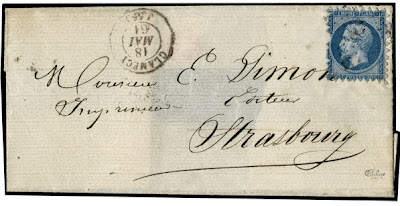 EMPIRE FRANC
CLAMECY
18
MAI
64
Monsieur E. Simon
Imprimeur Editeur
Strasbourg